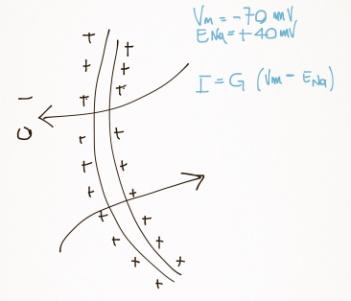 Vm = -70 mV
ENa = +40 mV
I = G (Vm - ENa)
+ +
+ +
+ +
+ +
+ +
+ +
+ +
+ +
+ +
+